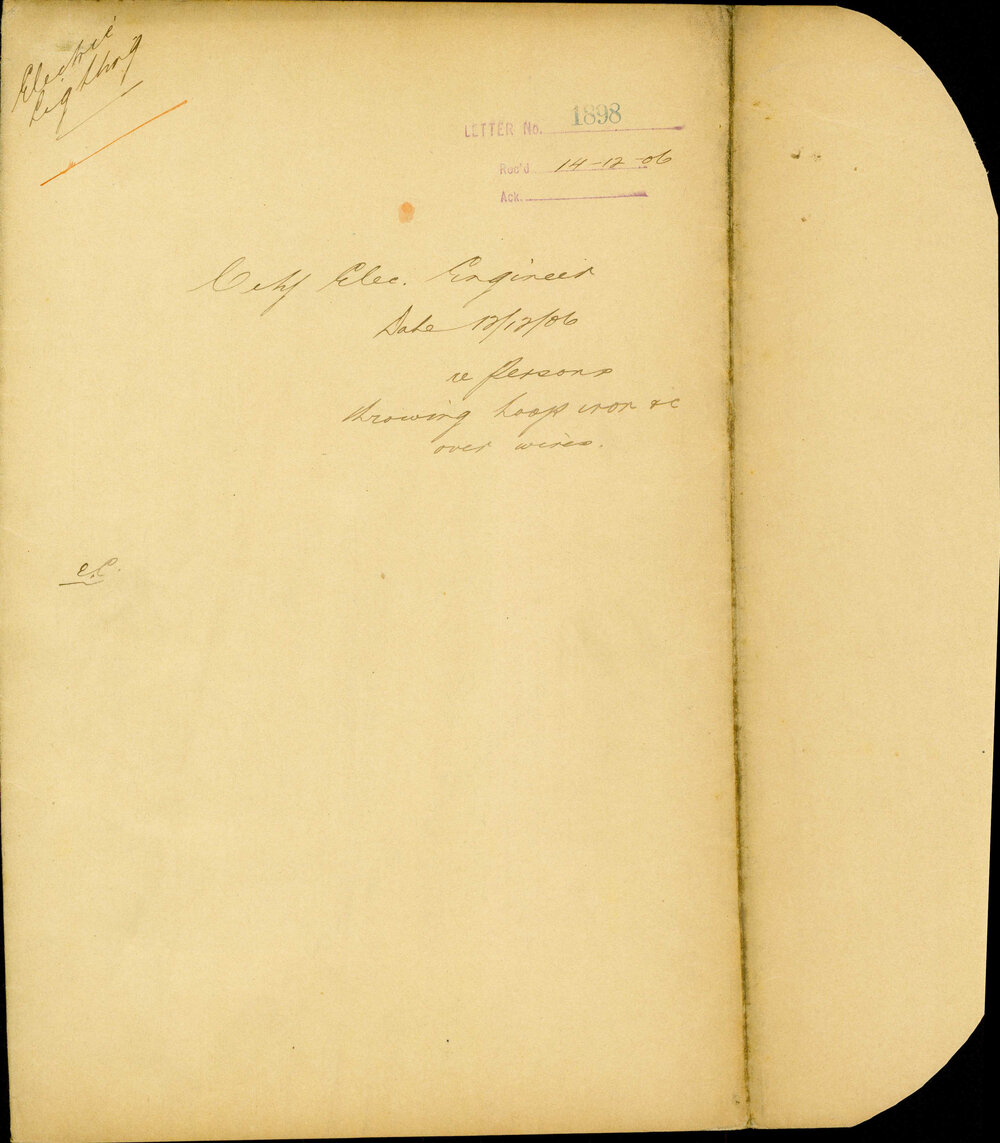 Electric
Lighting
LETTER No. 1898
Rec'd 14-12-06
Ack.
City Elec. Engineer
Date 12/12/06
re persons
throwing hoop iron &c
over wires.